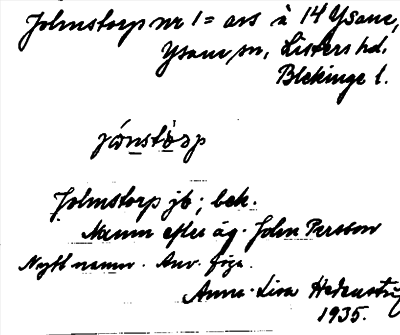 Johnstorp nr 1 = avs à 14 Ysane,
Ysane sn, Listers hd.
Blekinge l.
jónstòrp
Johnstorp jb; bek.
Namn efter äg. John Persson
Nytt namn. Anv. föga.
Anna-Lisa Hedenst
1935.